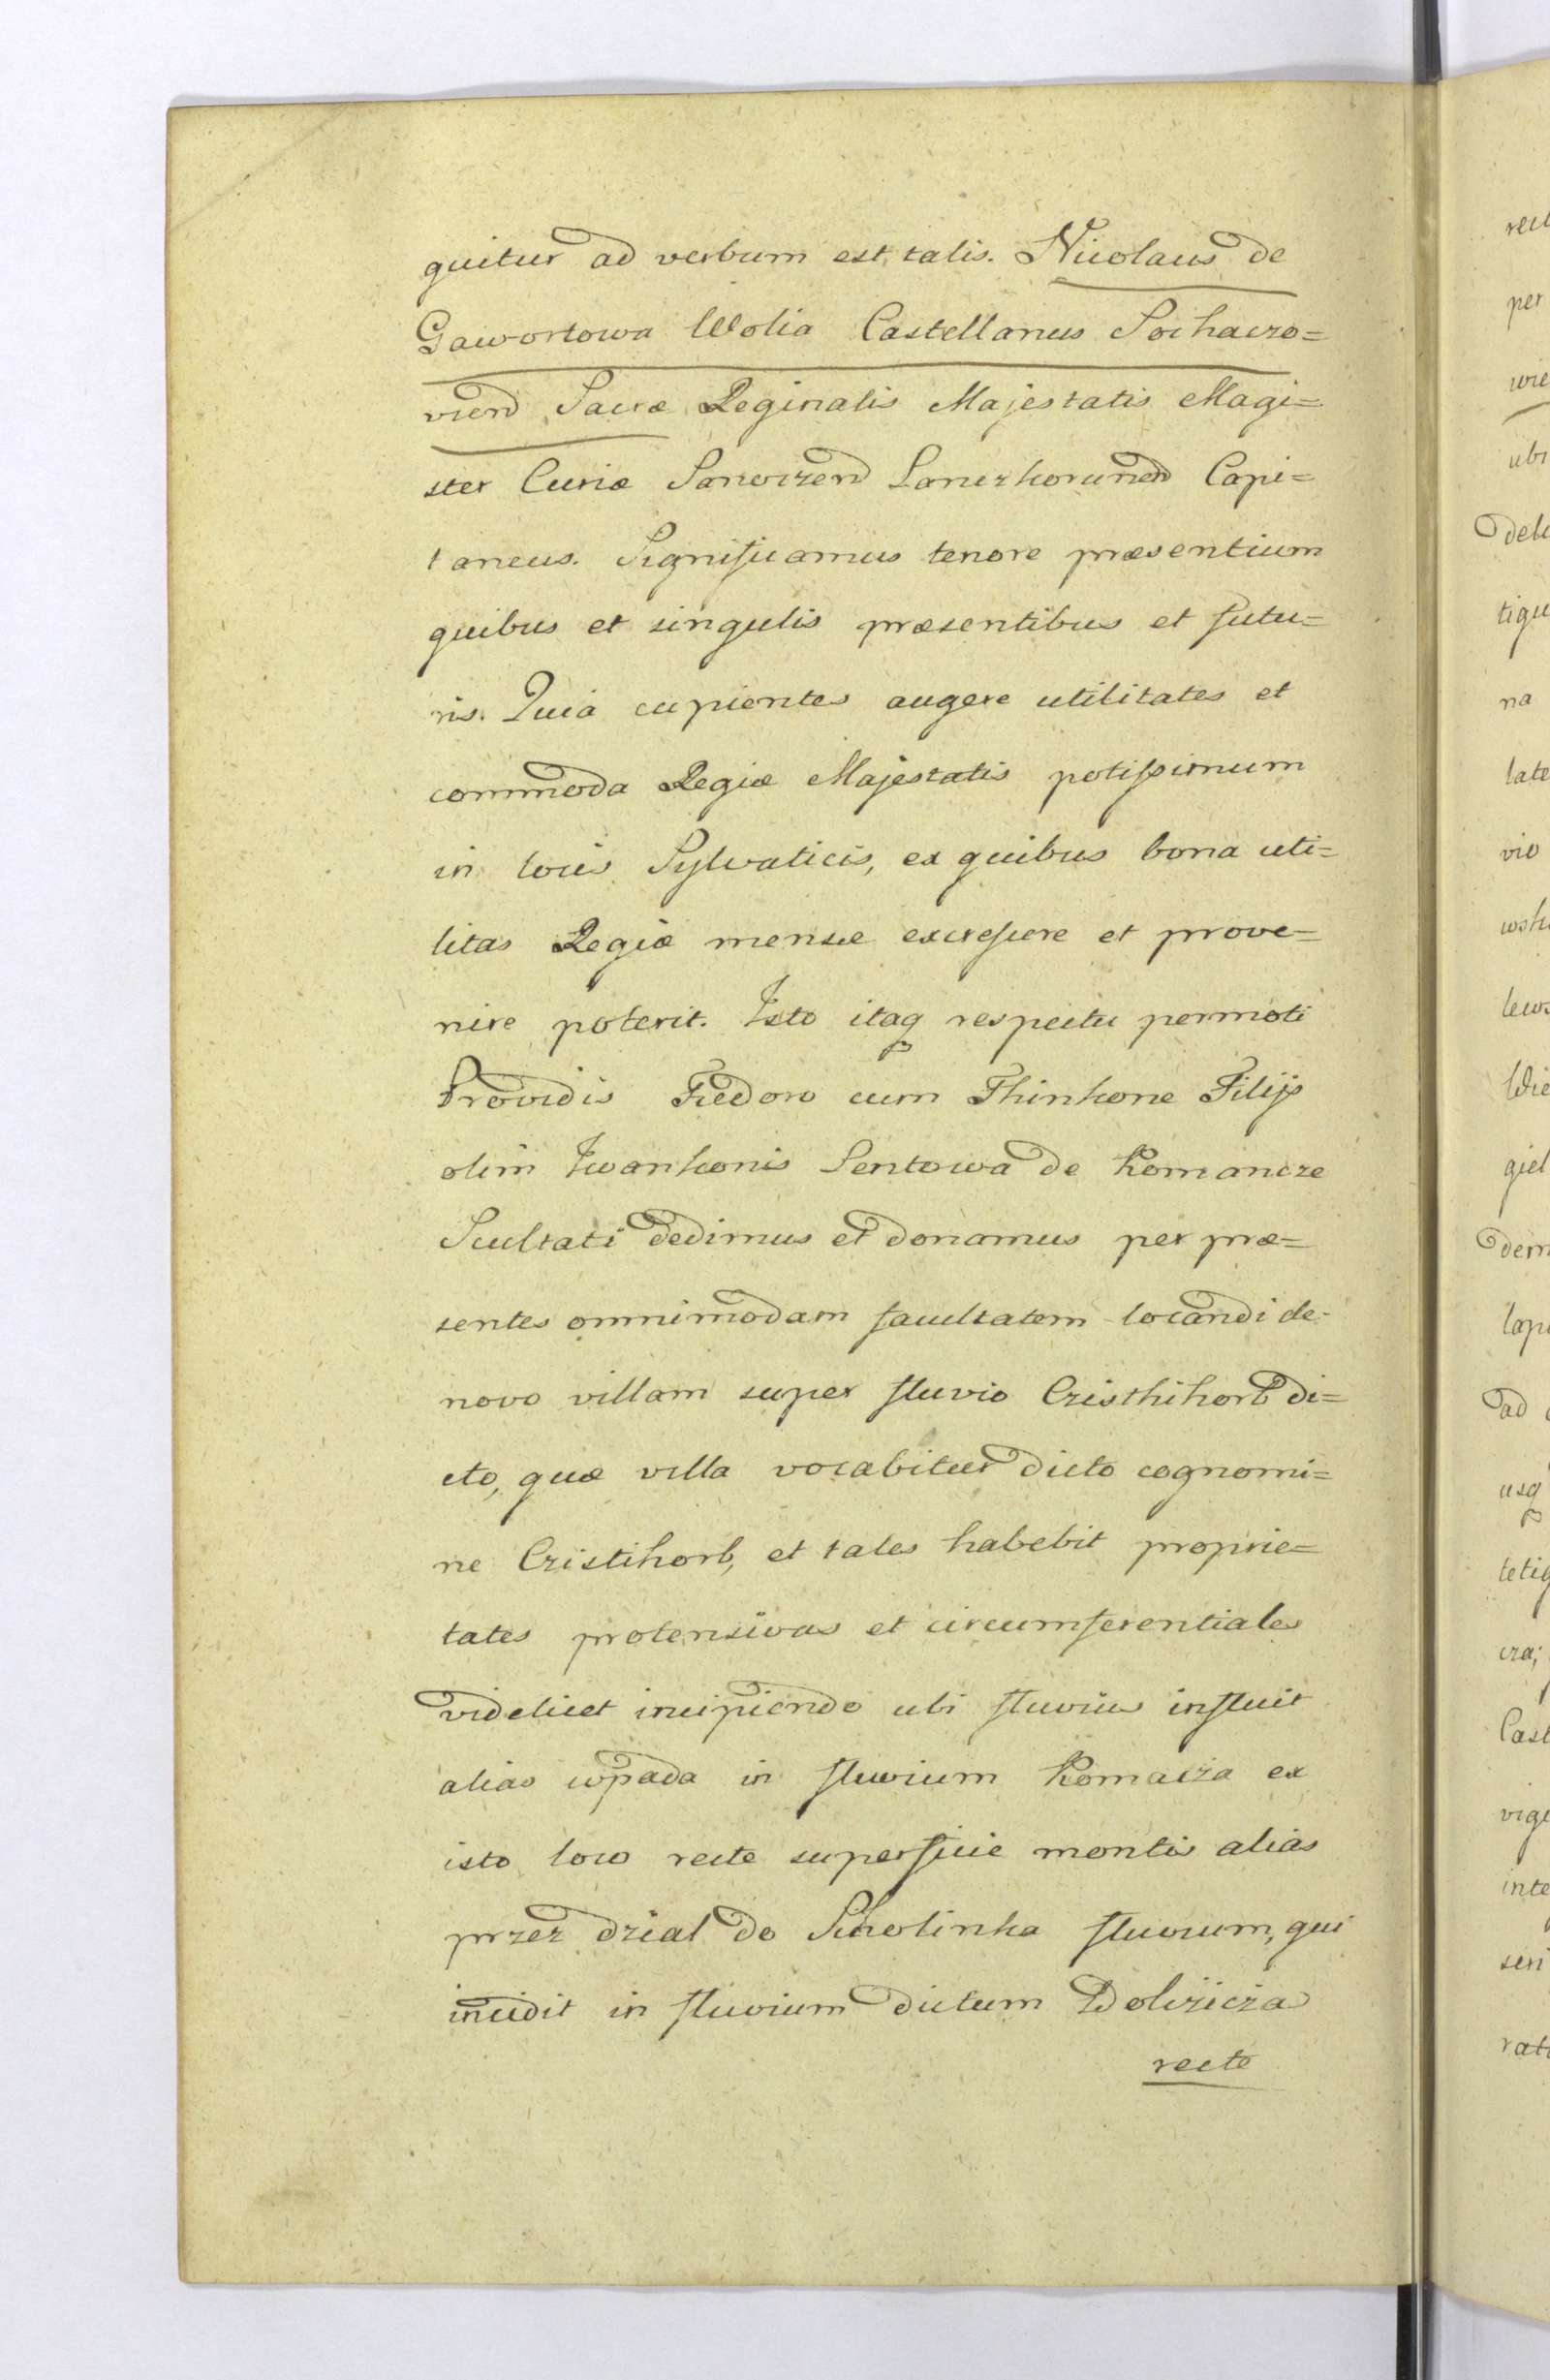 quitur ad verbum est talis. Nicolaus de
Gawortowa Wolia Castellanus Sochaczo=
vien Sacræ Reginalis Majestatis Magi=
ster Curiæ Sanoczen Lanczkorunen Capi=
taneus. Significamus tenore præsentium
quibus et singulis præsentibus et futu=
ris. Quia cupientes augere utilitates et
commoda Regiæ Majestatis potissimum
in locis Sylvaticis, ex quibus bona uti=
litas Regiæ mensæ excrescere et prove=
nire poterit. Isto itaq respectu permoti
Providis Fiedoro cum Thinkone Filijs
olim Iwankonis Sentowa de Komancze
Scultati dedimus et donamus per præ=
sentes omnimodam facultatem locandi de-
novo villam super fluvio Cristhihorb di=
cto, quæ villa vocabitur dicto cognomi=
ne Cristihorb, et tales habebit proprie=
tates protensivas et circumferentiales
videlicet incipiendo ubi fluvius influit
alias wpada in fluvium Komacza ex
isto loco recte superficie montis alias
przez dzial do Sucholinka fluvium, qui
incidit in fluvium dictum Dolzicza
recte
rect
per
wie
ubi
dele
tiqu
na
late
vio
wsk
lews
Wie
giel
dem
lapi
ad
usq
tetig
cza;
Cast
vige
inte
seri
rati